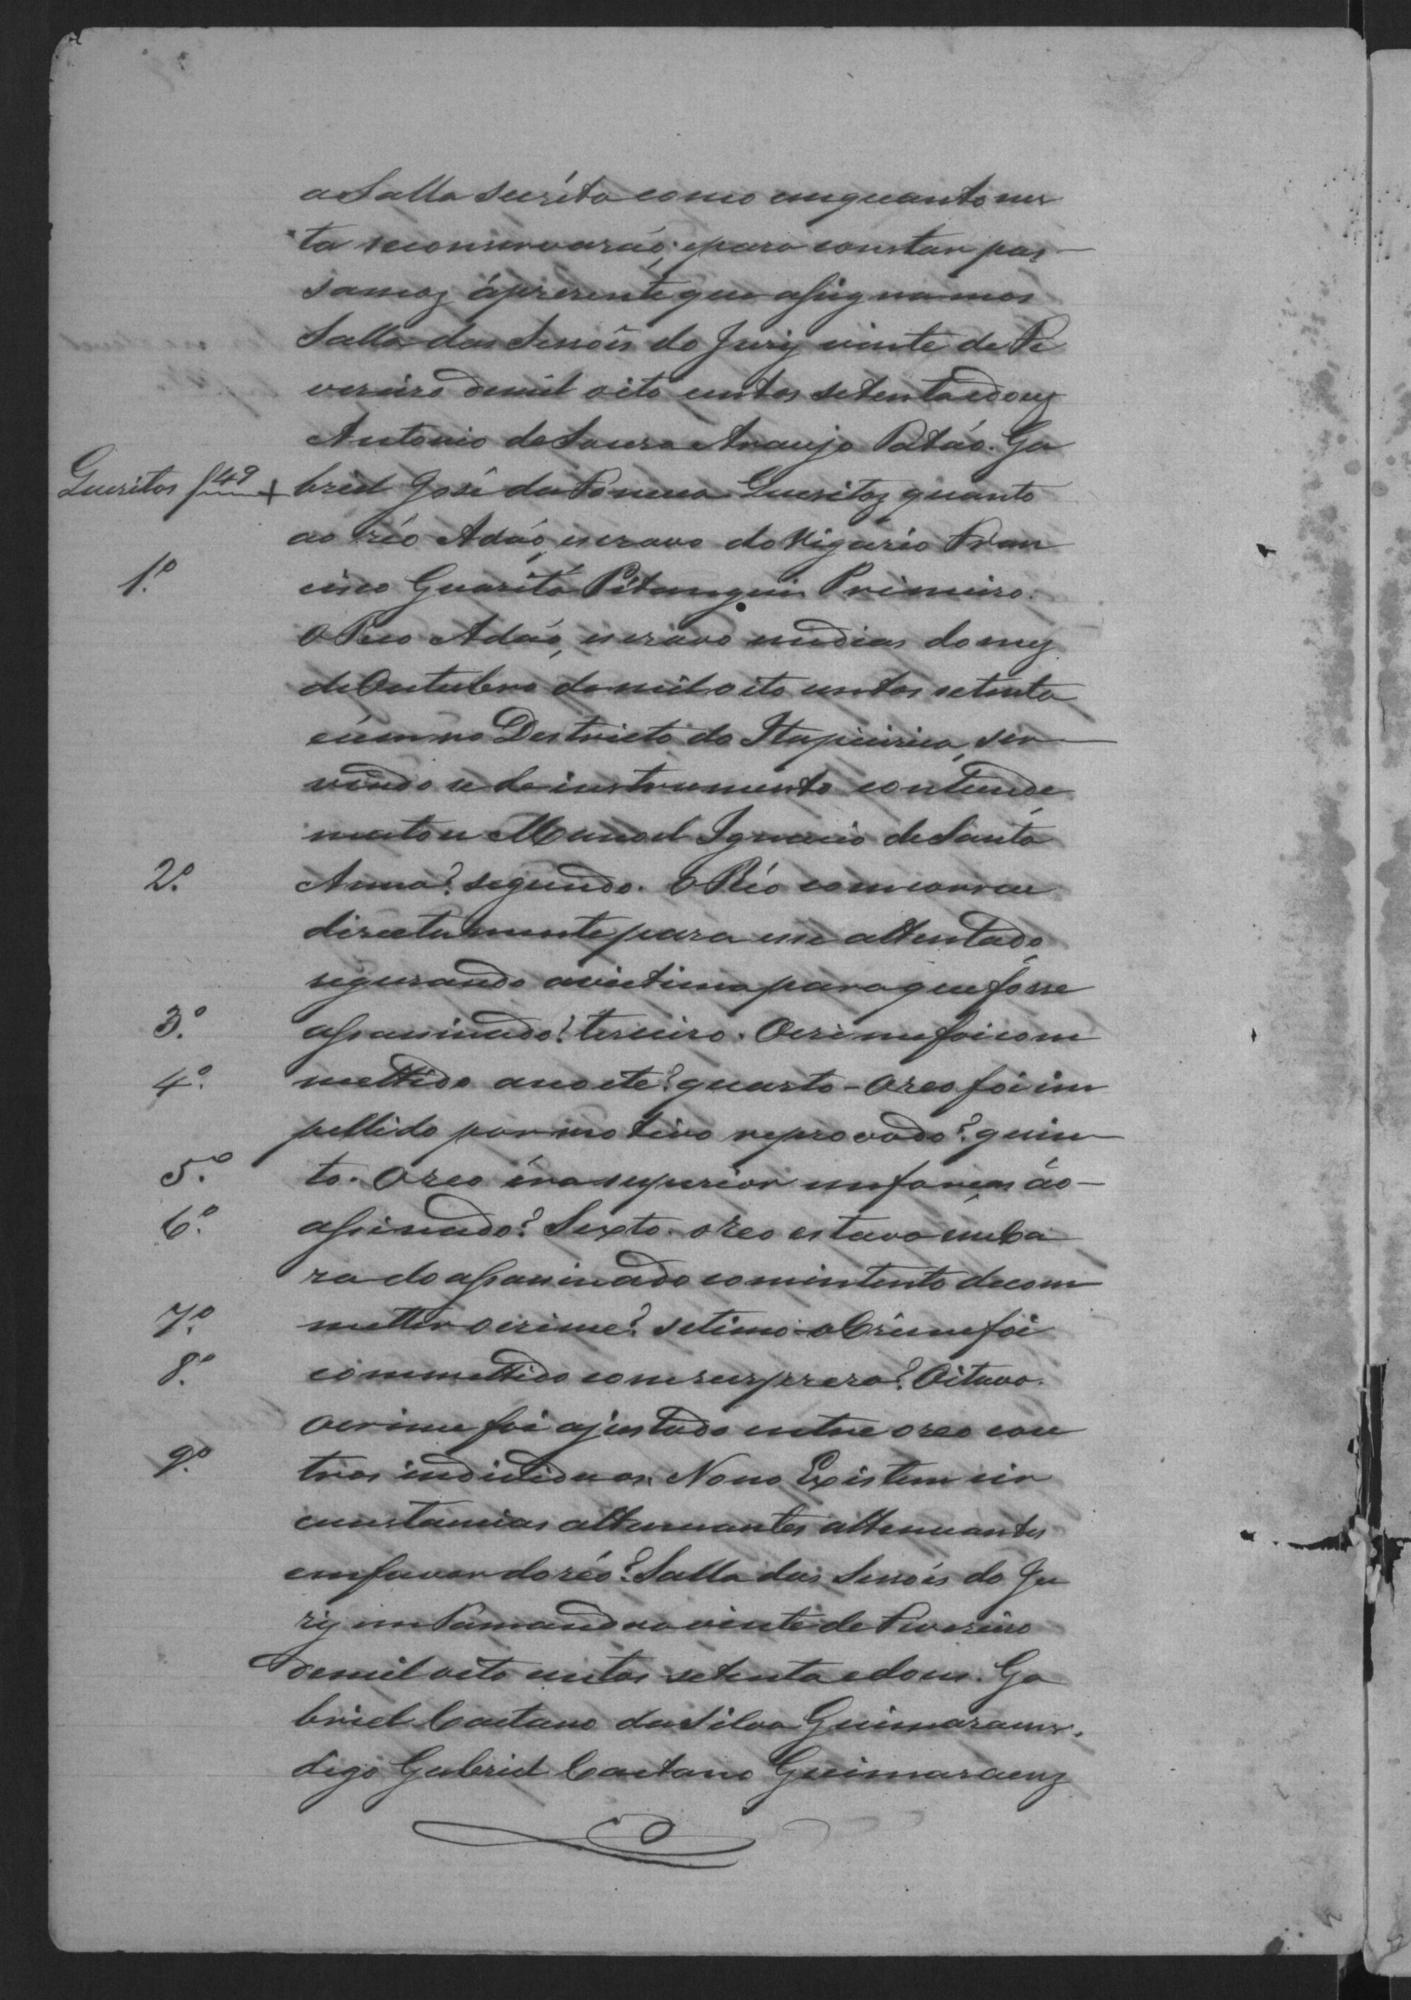 a Salla secréta como emquanto nes
ta se conservarão; e para constar pas-
samoz á presente que assignamos
Salla das Sessoẽs do Jury vinte de Fe
vereiro de mil oito centos setenta e douz
Antonio de Souza Araujo Patáo. Ga
Quesitos f 49 + briel José da Fonseca Quesitoz quanto
ao réo Adáo, escravo do Vigario Fran
1.º cisco Guarita Pitanguin Primeiro.
O Reo Adáo, escravo em dias do mez
de Outubro de mil oito centos setenta
e úm no Destricto do Itapicirica, ser-
vindo se de instrumento contundente
matou Manoel Ignacio de Santa
2.º Anna? segundo. O Réo concorreu
directamente para esse attentado
segurando a victima para que fosse
3.º assassinado? terceiro. O crime foi com
4.º mettido a noite? quarto - O reo foi im
pellido por motivo reprovado? quin-
5.º to. O reo éra superior em forças áo-
6.º assinado? Sexto. o reo estava émba
ra do assassinado com intento de com
7.º metter o crime? setimo o Crime foi
8.º commettido com surpreza? Oitavo.
O crime foi ajustado entre o reo e ou
9.º tros individuos. Nono Existem cir
cunstancias attenuantes attenuantes
em favor do réo? Salla das Sessoẽs do Ju
ry em Tamanduá vinte de Fevereiro
de mil oito centos setenta e dous. Ga
briel Caetano da Silva Guimaraens.
digo Gabriel Caetano Guimaraenz